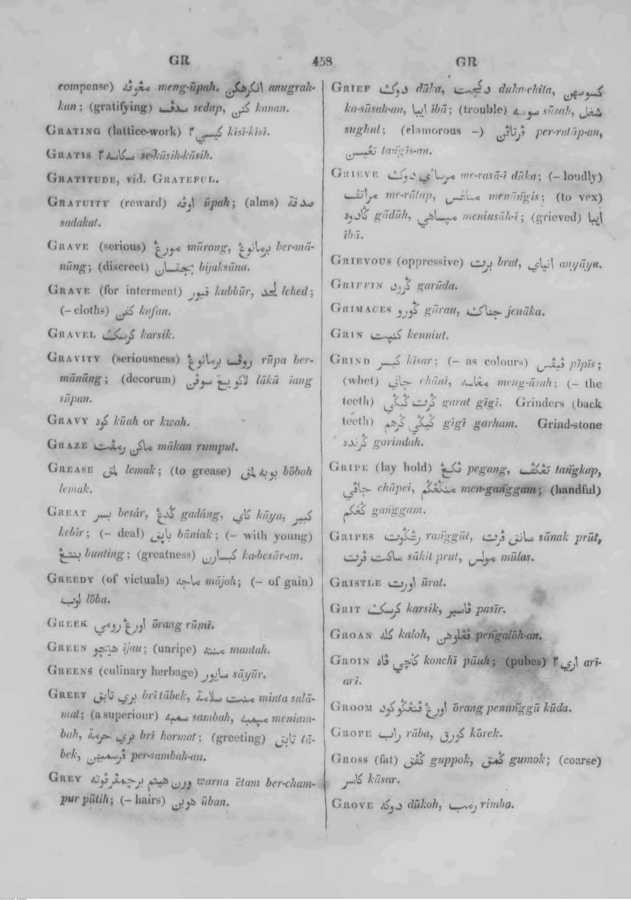 GR 458 GR
rompense) meng-ūpah, anugrah-
kan; (gratifying) صدف sedap, كنن kanan.
GRATING (lattice-work) كيسي٢ kisi-kisi.
GRATIS se-kūsih-kūsih.
GRATITUDE, vid. GRATEFUL.
GRATUITY (reward) اوفه ūpah; (alms) صدقة
sadakat.
GRAVE (serious) مورڠ mūrong, برمانوڠ ber-mā-
nūng; (discreet) بيجقسان bijaksāna.
GRAVE (for interment) قبور kubbūr, لحد lehed;
(– cloths) كفن kafan.
GRAVEL كرسيك karsik.
GRAVITY (seriousness) روف برمانوڠ rūpa ber-
mānūng; (decorum) لاكو يڠ سوفن lākū iang
sūpan.
GRAVY كوه kūah or kwah.
GRAZE ماكن رمفت mākan rumput.
GREASE لمق lemak; (to grease) بوبه لمق būboh
lemak.
GREAT بسر besār, گدڠ gadāng, كاي kāya, كبير
kebir; (– deal) بايق bāniak; (– with young)
بنتڠ bunting; (greatness) كبسارن ka-besār-an.
GREEDY (of victuals) ماجه mājoh; (– of gain)
لوب lōba.
GREEK اورڠ رومي ōrang rūmi.
GREEN هيجو ījau; (unripe) منته mantah.
GREENS (culinary herbage) سايور sāyūr.
GREET بري تابق bri tābek, منت سلامة minta salā-
mat; (a superiour) سمبه sambah, مپمبه meniam-
bah, بري حرمة bri hormat; (greeting) تابق tā-
bek, فرسمبهن per-sambah-an.
GREY ورن هيتم برچمفرفوته warna ītam ber-cham-
pur pūtih; (– hairs) هوبن ūban.
GRIEF دوك dūka, دكچيت duka-chita, كسوسهن
ka-sūsah-an, ايبا ibā; (trouble) سوسه sūsah, شغل
sughul; (clamorous –) فرتاڤن per-ratāp-an,
تڠيسن tangīs-an.
GRIEVE مرساي دوك me-rasā-i dūka; (– loudly)
مراتف me-rātap, مناڠس menāngis; (to vex)
گادوه gādūh, meniusāh-i; (grieved) ايبا
ibā.
GRIEVOUS (oppressive) برت brat, انياي anyāya.
GRIFFIN گرود garūda.
GRIMACES گورو gūrau, جناك jenāka.
GRIN كنيت kenniut.
GRIND كيسر kīsar; (– as colours) فيفس pīpis;
(whet) چاني chāni, مڠاسه meng-āsah; (– the
teeth) گرت گيگي garat gīgi. Grinders (back
teeth) گيگي گرهم gīgi garham. Grind-stone
گرنده gorindah.
GRIPE (lay hold) فگڠ pegang, تڠكف tangkap,
چافي chāpei, مڠگڠگم men-ganggam; (handful)
گڠگم ganggam.
GRIPES رڠگوت ranggūt, سانق فرت sānak prūt,
ساكت فرت sākit prut, مولس mūlas.
GRISTLE اورت ūrat.
GRIT كرسيك karsik, فاسير pasīr.
GROAN كله kaloh, فڠلوهن pengalōh-an.
GROIN كنچي فاه konchī pāuh; (pubes) اري٢ ari-
ari.
GROOM ōrang penunggū kūda.
GROPE راب rāba, كورق kōrek.
GROSS (fat) گفق guppok, گمق gumok; (coarse)
كاسر kāsar.
GROVE دوكه dūkoh, رمب rimba.